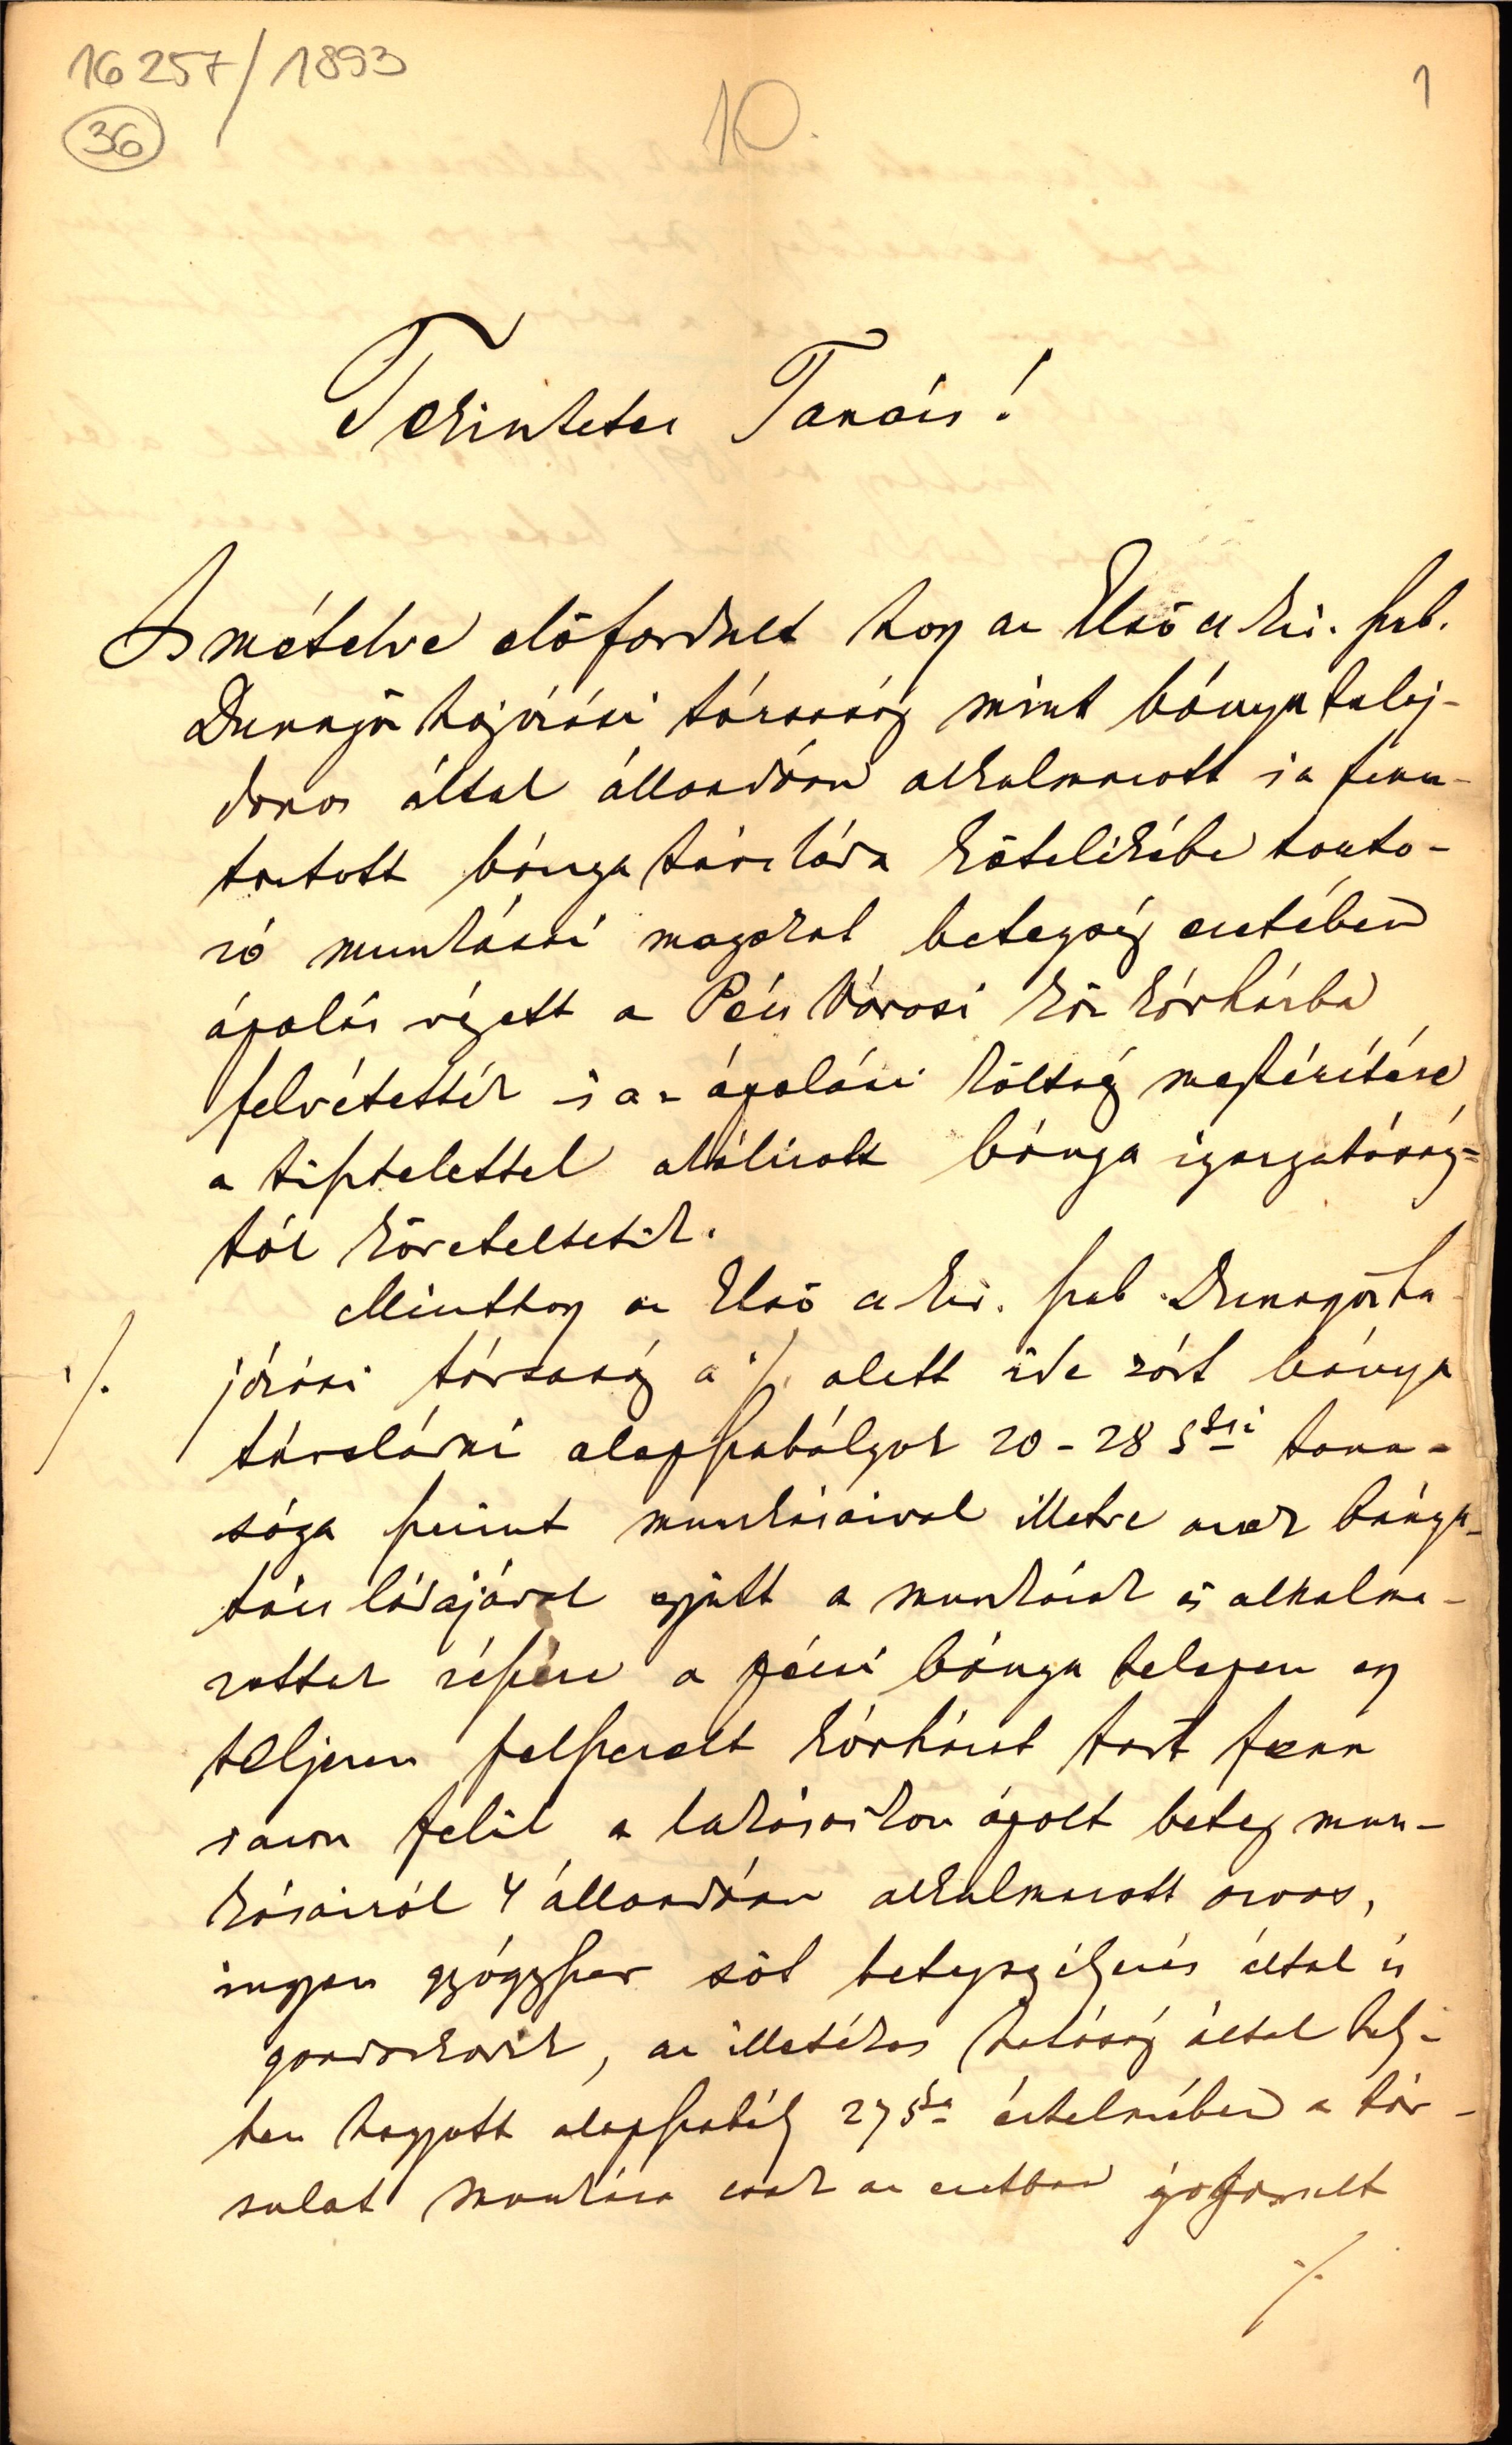 16257/1893
36
10.
1
Tekintetes Tanács!
Ismételve előfordult hogy az Első cs kir. szab.
Dunagőzhajózási társaság mint bánya tulaj-
donos által állandóan alkalmazott s a fenn-
tartott bánya társláda kötelékébe tarto-
zó munkásai magokat betegség esetében
ápolás végett a Pécs Városi köz kórházba
felvétették és az ápolási költség megtérítése
a tisztelettel alólirott bánya igazgatóság-
tól követeltetik.
Minthogy az Első cs kir. szab Dunagőzha
·/. józási társaság a ·/. alatt ide zárt bánya
társládai alapszabályok 20-28 § tanu-
sága szerint munkásaival illetve azok bánya-
társ ládájával együtt a munkások és alkalma-
zottak részére a pécsi bánya telepen egy
teljesen felszerelt kórházat tart fenn
s azon felül a lakásaikon ápolt beteg mun-
kásairól 4 állandóan alkalmazott orvos,
ingyen gyógyszer sőt betegsegélyezés által is
gondoskodik, az illetékes hatóság által hely-
ben hagyott alapszabály 27 §sa értelmében a tár-
sulat munkása csak az esetben
·/.